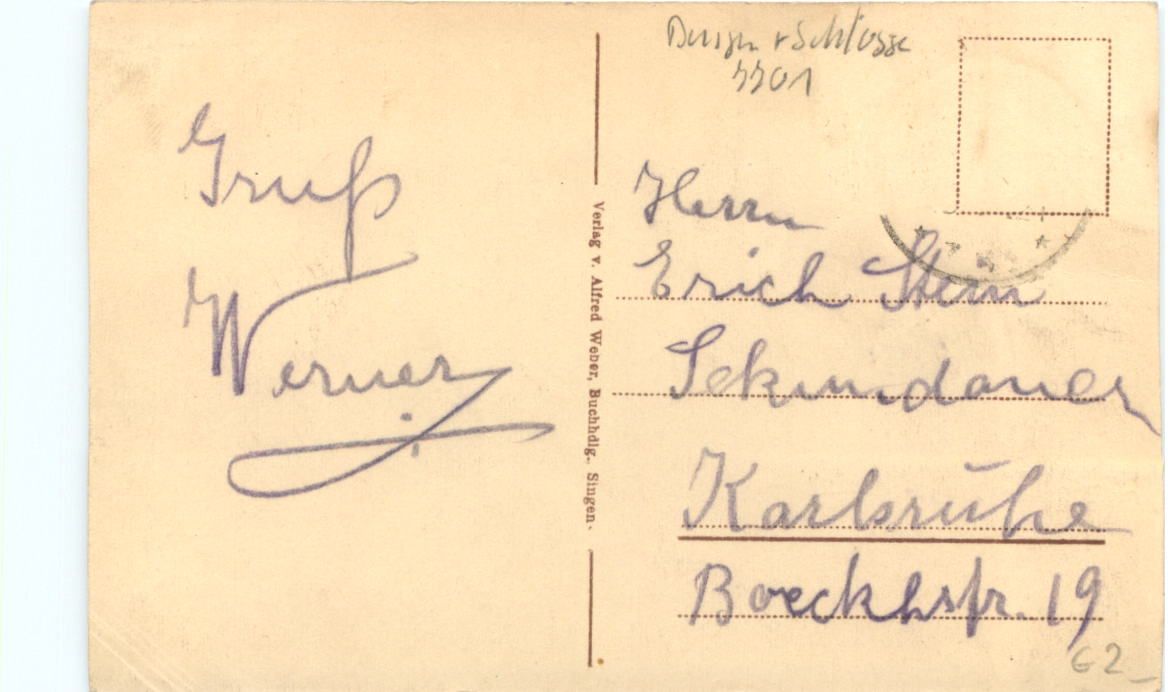 Gruß
Werner
Verlag v. Alfred Weber, Buchhdlg., Singen.
Burgen + Schlösse
7701
Herrn
Erich Stein
Sekundaner
Karlsruhe
Boeckhstr. 19
62